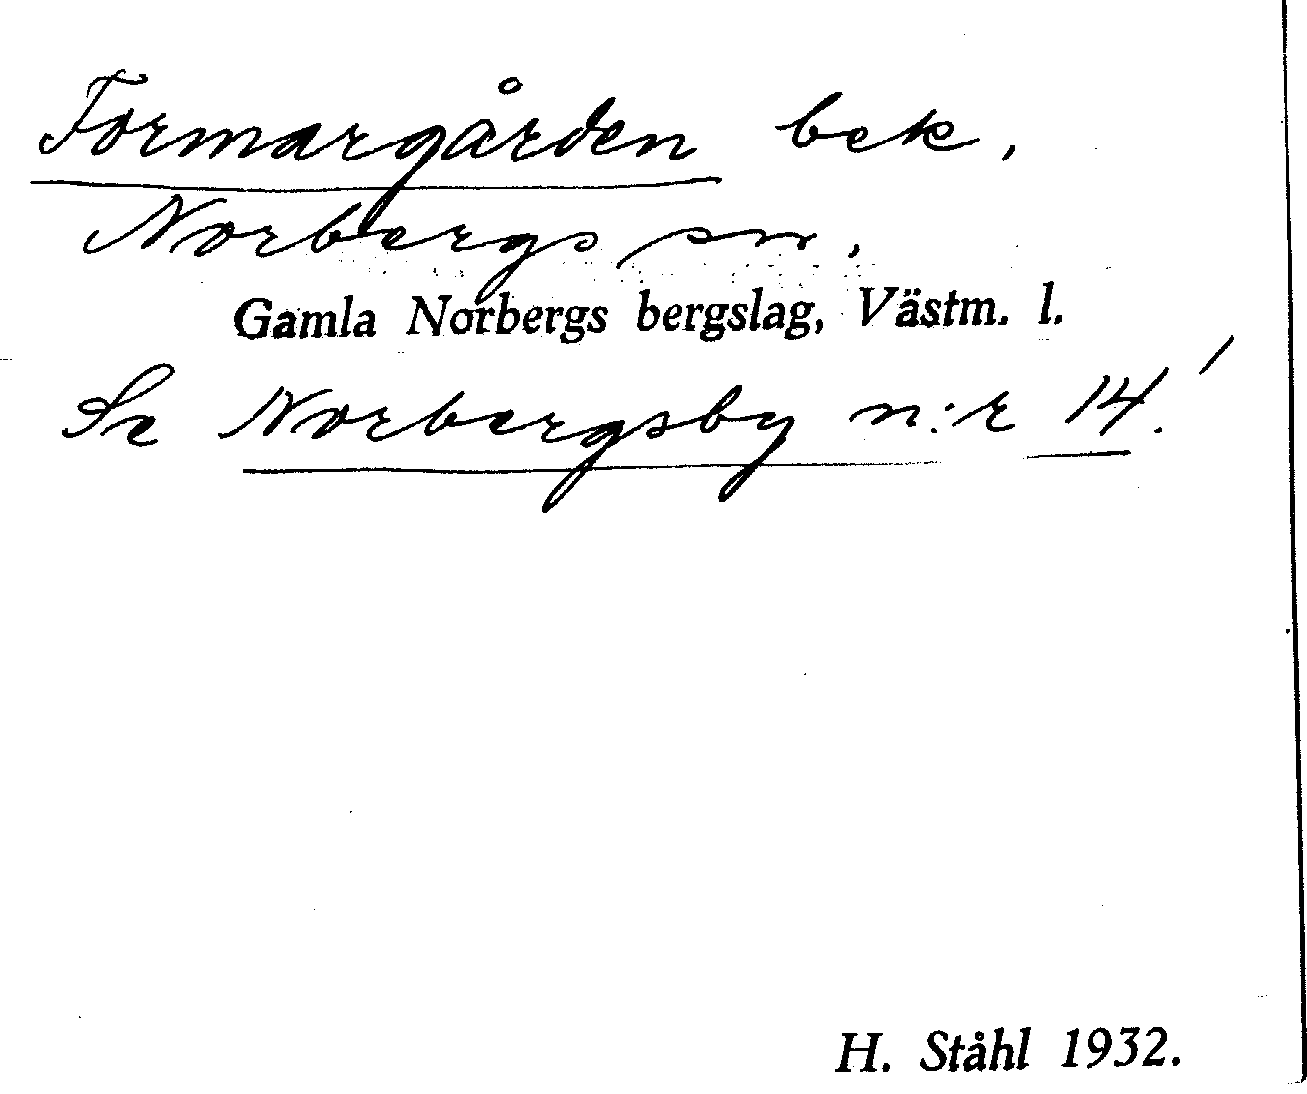 Formargården bek.
Norbergs sn.
Gamla Norbergs bergslag, Västm. l.
Se Norbergsby n:r 14!
H. Ståhl 1932.